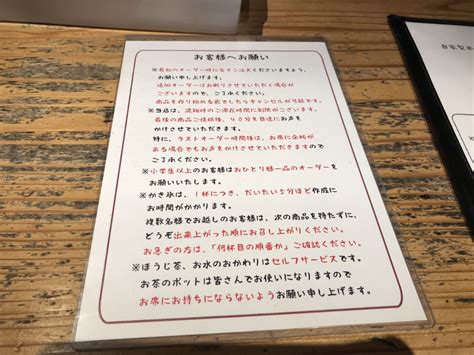 お客様へお願い
※最初のオーダー時に全てご注文くださいますよう、
お願い申し上げます。
追加オーダーはお断りさせていただく場合が
ございますので、ご了承ください。
商品を作り始める前でしたらキャンセルが可能です。
※当店は、混雑時のご滞在時間に制限がございます。
最後の商品ご提供後、40分を目途にお声を
かけさせていただきます。
特に、ラストオーダー時間後は、お席に余裕が
ある場合でもお声をかけさせていただきますので
ご了承ください。
※小学生以上のお客様はおひとり様一品のオーダーを
お願いいたします。
※かき氷は、1杯につき、だいたい5分ほど作成に
お時間がかかります。
複数名様でお越しのお客様は、次の商品を待たずに、
どうぞ出来上がった順にお召し上がりください。
お急ぎの方は、「何杯目の順番か」ご確認ください。
※ほうじ茶、お水のおかわりはセルフサービスです。
お茶のポットは皆さんでお使いになりますので
お席にお持ちにならないようお願い申し上げます。